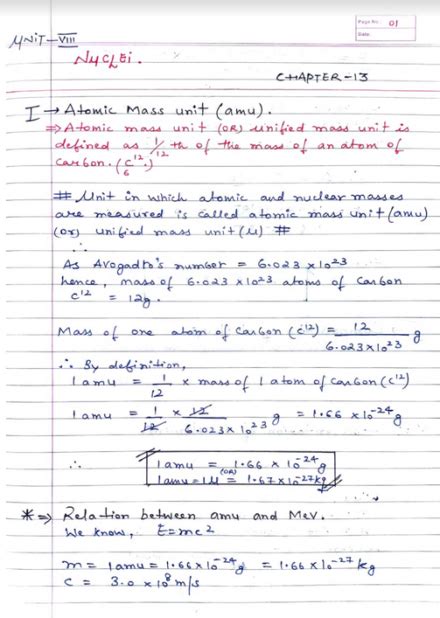 Page No. 01
Date
UNIT-VIII
NUCLEI.
CHAPTER-13
I → Atomic Mass unit (amu).
⇒ Atomic mass unit (OR) unified mass unit is
defined as 1/12 th of the mass of an atom of
carbon. (₆C¹²)
# Unit in which atomic and nuclear masses
are measured is called atomic mass unit (amu)
(or) unified mass unit (u) #
∴
As Avogadro's number = 6.023 × 10²³
hence, mass of 6.023 × 10²³ atoms of carbon
C¹² = 12g.
Mass of one atom of carbon (C¹²) = 12 / 6.023×10²³ g
∴ By definition,
1 amu = 1/12 × mass of 1 atom of carbon (C¹²)
1 amu = 1/12 × 12 / 6.023×10²³ g = 1.66 × 10⁻²⁴ g
∴ 1 amu = 1.66 × 10⁻²⁴ g
(OR)
1 amu = 1u = 1.67 × 10⁻²⁷ kg
* ⇒ Relation between amu and MeV.
We know, E = mc2
m = 1 amu = 1.66 × 10⁻²⁴ g = 1.66 × 10⁻²⁷ kg
c = 3.0 × 10⁸ m/s